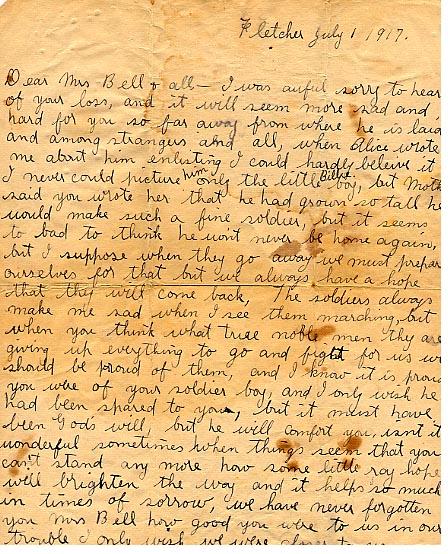 Fletcher July 1 1917.
Dear Mrs Bell & all - I was awful sorry to hear
of your loss, and it will seem more sad and
hard for you so far away from where he is laid
and among strangers and all, when Alice wrote
me about him enlisting I could hardly beleive it
I never could picture him only the little Billy boy, but Moth
said you wrote her that he had grown so tall he
would make such a fine soldier, but it seems
to bad to think he won't never be home again,
but I suppose when they go away we must prepar
ourselves for that but we always have a hope
that they will come back, The soldiers always
make me sad when I see them marching, but
when you think what true noble men they are
giving up everything to go and fight for us we
should be proud of them, and I know it is prou
you were of your soldier boy, and I only wish he
had been spared to you, but it must have
been God's will, but he will comfort you, isn't it
wonderful sometimes when things seem that you
can't stand any more how some little ray hope
will brighten the way and it helps so much
in times of sorrow, we have never forgotten
you Mrs Bell how good you were to us in our
trouble I only wish we were